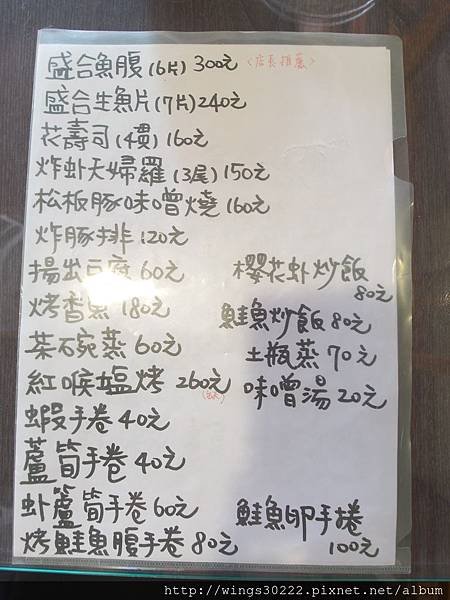 盛合魚腹(6片) 300元 <店長推薦>
盛合生魚片(7片)240元
花壽司(4貫)160元
炸虾天婦羅(3尾)150元
松板豚味噌燒160元
炸豚排120元
揚出豆腐60元
烤香魚180元
茶碗蒸60元
紅喉塩烤260元
蝦手卷40元
蘆筍手卷40元
虾蘆筍手卷60元
烤鮭魚腹手卷80元
櫻花虾炒飯
80元
鮭魚炒飯80元
土瓶蒸70元
味噌湯20元
鮭魚卵手捲
100元
http://wings30222.pixnet.net/album